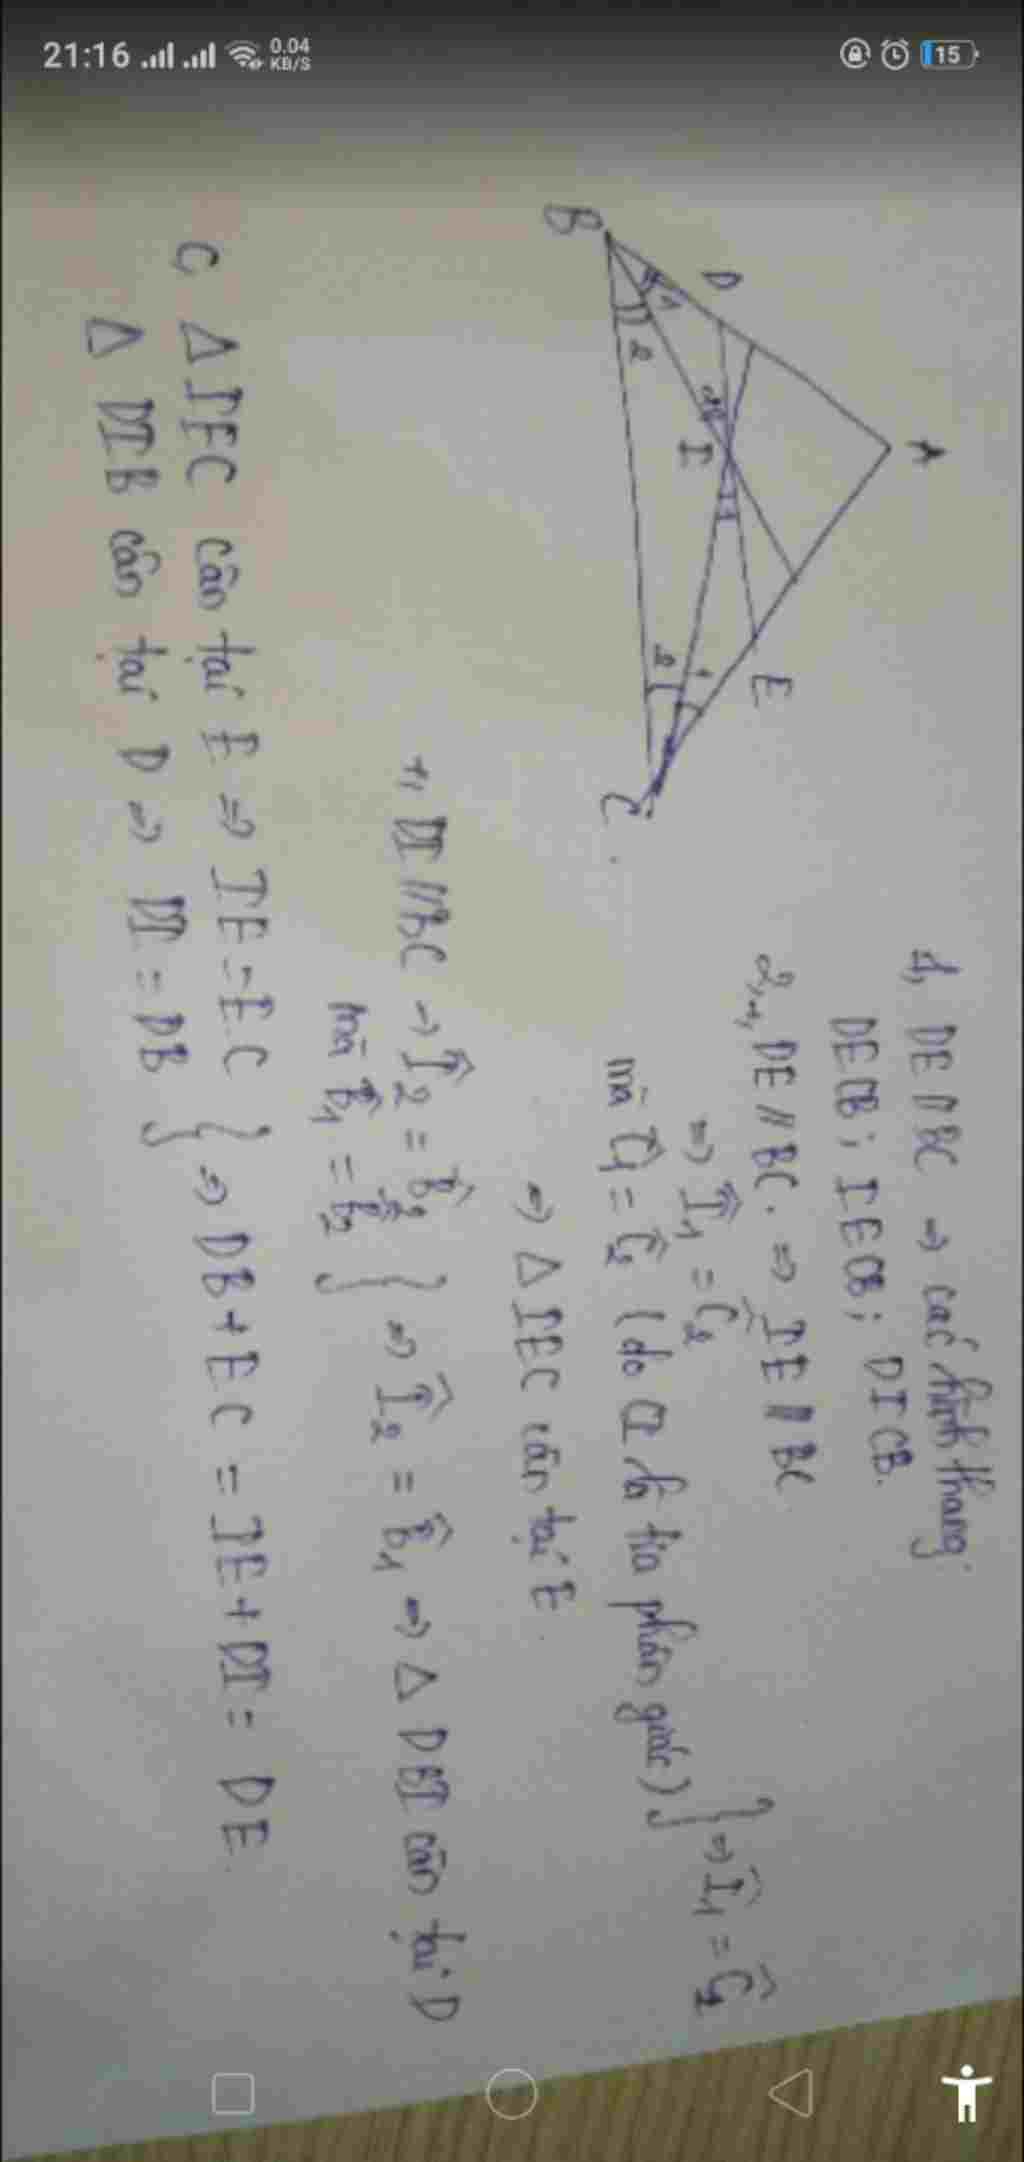 21:16
0.04
KB/S
15
A
D
E
B
1
2
2
I
1
1
2
C
1, DE // BC → các hình thang
DECB; IECB; DICB.
2, +, DE // BC. ⇒ IE // BC
⇒ Î₁ = Ĉ₂
mà Ĉ₁ = Ĉ₂ (do CI là tia phân giác) } ⇒ Î₁ = Ĉ₁
⇒ Δ IEC cân tại E.
+, DI // BC → Î₂ = B̂₂
mà B̂₁ = B̂₂ } ⇒ Î₂ = B̂₁ ⇒ Δ DBI cân tại D
C Δ IEC cân tại E ⇒ IE = EC
Δ DIB cân tại D ⇒ DI = DB } ⇒ DB + EC = IE + DI = DE.